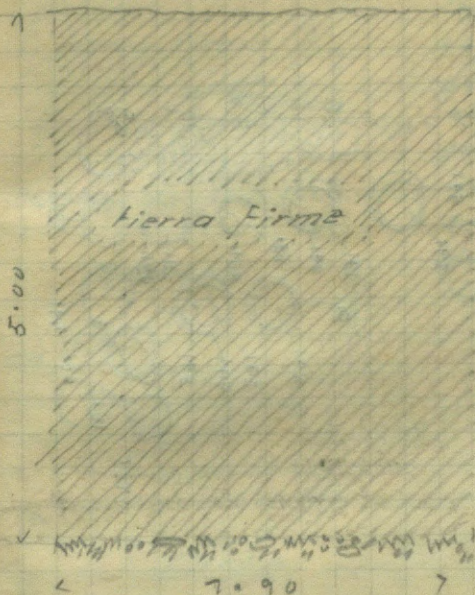 tierra firme
5.00
1.90